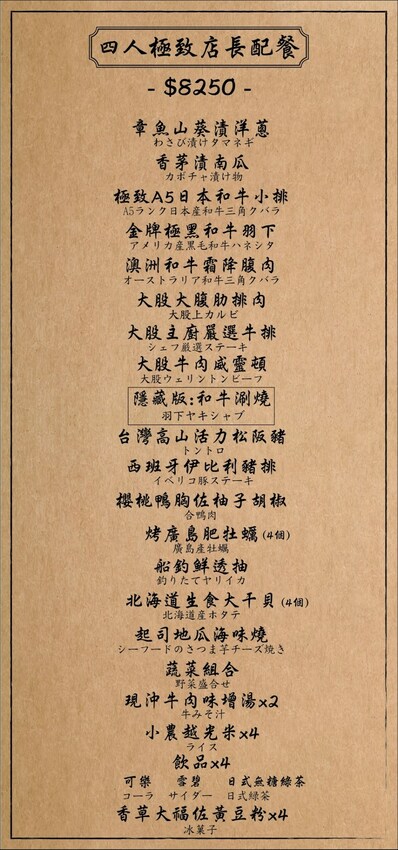 四人極致店長配餐
- $8250 -
章魚山葵漬洋蔥
わさび漬けタマネギ
香茅漬南瓜
カボチャ漬け物
極致A5日本和牛小排
A5ランク日本産和牛三角クバラ
金牌極黑和牛羽下
アメリカ産黒毛和牛ハネシタ
澳洲和牛霜降腹肉
オーストラリア和牛三角クバラ
大股大腹肋排肉
大股上カルビ
大股主廚嚴選牛排
シェフ厳選ステーキ
大股牛肉威靈頓
大股ウェリントンビーフ
隱藏版:和牛涮燒
羽下ヤキシャブ
台灣高山活力松阪豬
トントロ
西班牙伊比利豬排
イベリコ豚ステーキ
櫻桃鴨胸佐柚子胡椒
合鴨肉
烤廣島肥牡蠣(4個)
廣島産牡蠣
船釣鮮透抽
釣りたてヤリイカ
北海道生食大干貝(4個)
北海道産ホタテ
起司地瓜海味燒
シーフードのさつま芋チーズ焼き
蔬菜組合
野菜盛合せ
現沖牛肉味增湯x2
牛みそ汁
小農越光米x4
ライス
飲品x4
可樂 雪碧 日式無糖綠茶
コーラ サイダー 日式緑茶
香草大福佐黃豆粉x4
冰菓子